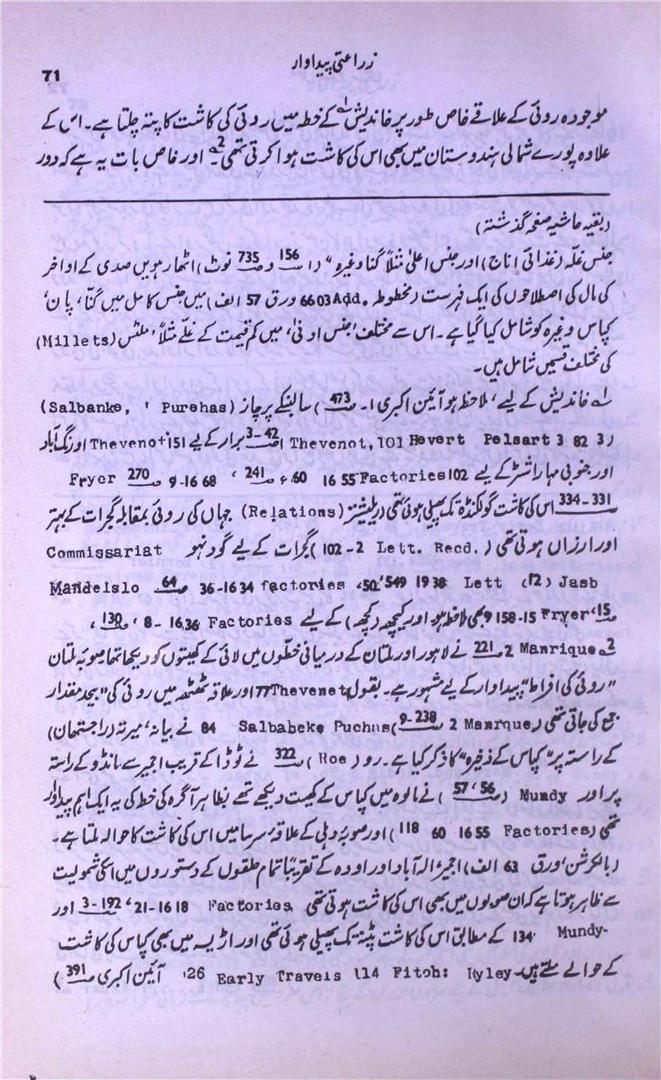 71
زراعتی پیداوار
موجودہ روئی کے علاقے خاص طور پر خاندیش ؎۱ کے خطہ میں روئی کی کاشت کا پتہ چلتا ہے۔ اس کے
علاوہ پورے شمالی ہندوستان میں بھی اس کی کاشت ہوا کرتی تھی ؎2 اور خاص بات یہ ہے کہ دور
(بقیہ حاشیہ صفحہ گذشتہ)
جنس غلہ (غذائی اناج) اور جنس اعلیٰ مثلاً گنا وغیرہ" (۱ ص156 و ص735 نوٹ) اٹھارہویں صدی کے اواخر
کی مال کی اصطلاحوں کی ایک فہرست (مخطوطہ Add. 6603 ورق 57 الف) میں جنس کامل میں گنّا، پان،
کپاس وغیرہ کو شامل کیا گیا ہے۔ اس سے مختلف 'جنس ادنیٰ' میں کم قیمت کے غلے مثلاً 'ملٹس (Millets)
کی مختلف قسمیں شامل ہیں۔
؎۱ خاندیش کے لیے، لاحظ ہو آئین اکبری ا۔ ص473) سالبنکے پرچاز (Salbanke, ' Purehas)
3 82 3) Pelsart Hevert 101 ,Thevenot ص42-3 برار کے لیے Thevenot 151 اورنگ آباد
اور جنوبی مہاراشٹر کے لیے Factories 102 16 55 60ء ص241 ، 9-16 68 ص270 Fryer
331-334 اس کی کاشت گولکنڈہ تک پھیلی ہوئی تھی (ریلیشنز (Relations) جہاں کی روئی بمقابلہ گجرات کے بہتر
اور ارزاں ہوتی تھی (.Lett. Recd 2-102) گجرات کے لیے گودنہو Commissariat
Jasb (12) Lett 1938 549 '50، factories 36-1634 ص64 Mandelslo
ص15، Fryer 9 158-15 بھی ملاحظہ ہو اور کیچھ (کچھ) کے لیے Factories 8-1636 ، ص130 ،
؎2 Manrique 2 ص221 نے لاہور اور ملتان کے درمیانی خطّوں میں لائی کے کھیتوں کو دیکھا تھا صوبہ ملتان
"روئی کی افراط" پیداوار کے لیے مشہور ہے۔ بقول Thevenet 77 اور علاقہ ٹھٹھہ میں روئی کی "بیحد مقدار
جمع کی جاتی تھی (Manrque 2 ص238-9) Salbabeke Puchas 84 نے بیانہ، میرتہ (راجتھان)
کے راستہ پر "کپاس کے ذخیرہ" کا ذکر کیا ہے۔ رو (Roe) ص322 نے ٹوڈا کے قریب اجمیر سے مانڈو کے راستہ
پر اور Mundy (ص56، 57) نے مالوہ میں کپاس کے کھیت دیکھے تھے بظاہر آگرہ کی خطہ کی یہ ایک اہم پیداوار
تھی (Factories 16 55 60 ص118) اور صوبہ دہلی کے علاقہ سرسا میں اس کی کاشت کا حوالہ ملتا ہے۔
(بالکرشن ورق 63 الف) اجمیر الہ آباد اور اودہ کے تقریباً تمام حلقوں کے دستوروں میں اسکی شمولیت
سے ظاہر ہوتا ہے کہ ان صوبوں میں بھی اس کی کاشت ہوتی تھی Factories 21-1618، ص192-3 اور
Mundy- 134 کے مطابق اس کی کاشت پٹنہ تک پھیلی ہوئی تھی اور اڑیسہ میں بھی کپاس کی کاشت
کے حوالے ملتے ہیں۔ Early Travels 114 Fitoh: Ryley 26، آئین اکبری ص391)